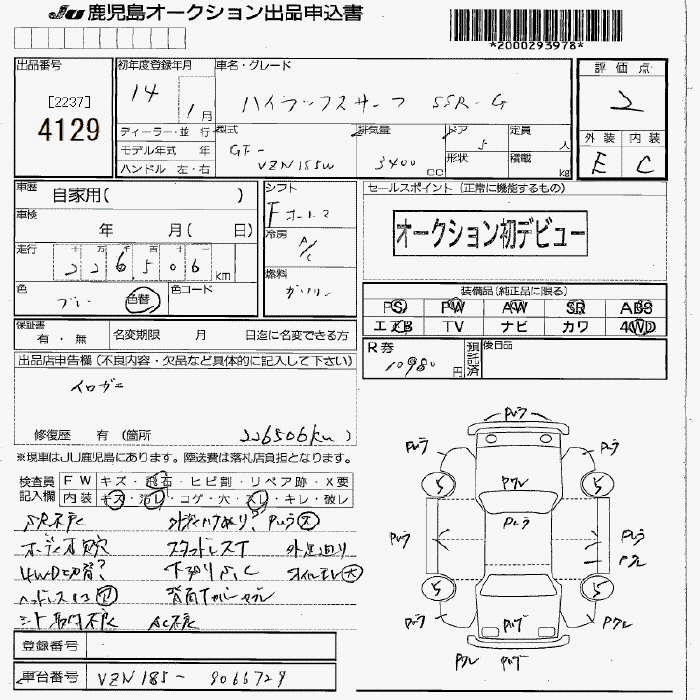 JU 鹿児島オークション出品申込書
*2000293978*
出品番号
[2237]
4129
初年度登録年月
14 1月
車名・グレード
ハイラックスサーフ SSR-G
評価点
2
外装 内装
E C
ディーラー・並行
モデル年式 年
ハンドル 左・右
型式
GF-
VZN185W
排気量
3400 CC
ドア
5
形状
定員
人
積載
kg
車歴
自家用( )
車検
年 月( 日)
走行
十 万 千 百 十 一
226,506 km
色
ブルー 色替
色コード
シフト
Fオートマ
冷房
A/C
燃料
ガソリン
セールスポイント (正常に機能するもの)
オークション初デビュー
装備品(純正品に限る)
PS PW AW SR ABS
エアB TV ナビ カワ 4WD
保証書
有・無
名変期限 月 日迄に名変できる方
R券
10980円
預託済
後日品
出品店申告欄(不良内容・欠品など具体的に記入して下さい)
イロガエ
修復歴 有 (箇所 226506km )
※現車はJU鹿児島にあります。陸送費は落札店負担となります。
検査員
記入欄
FW キズ・飛石・ヒビ割・リペア跡・X要
内装 キズ・汚レ・コゲ・穴・スレ・キレ・破レ
スタッドレスT
4WD切替?
シート取付不良 AC不良
Pムラ
Pムラ Pムラ
Pワレ
5 5
Pムラ
Pムラ Pムラ
Pワレ
5 5
Pムラ Pワレ
Pワレ
登録番号
車台番号 VZN185- 9066729